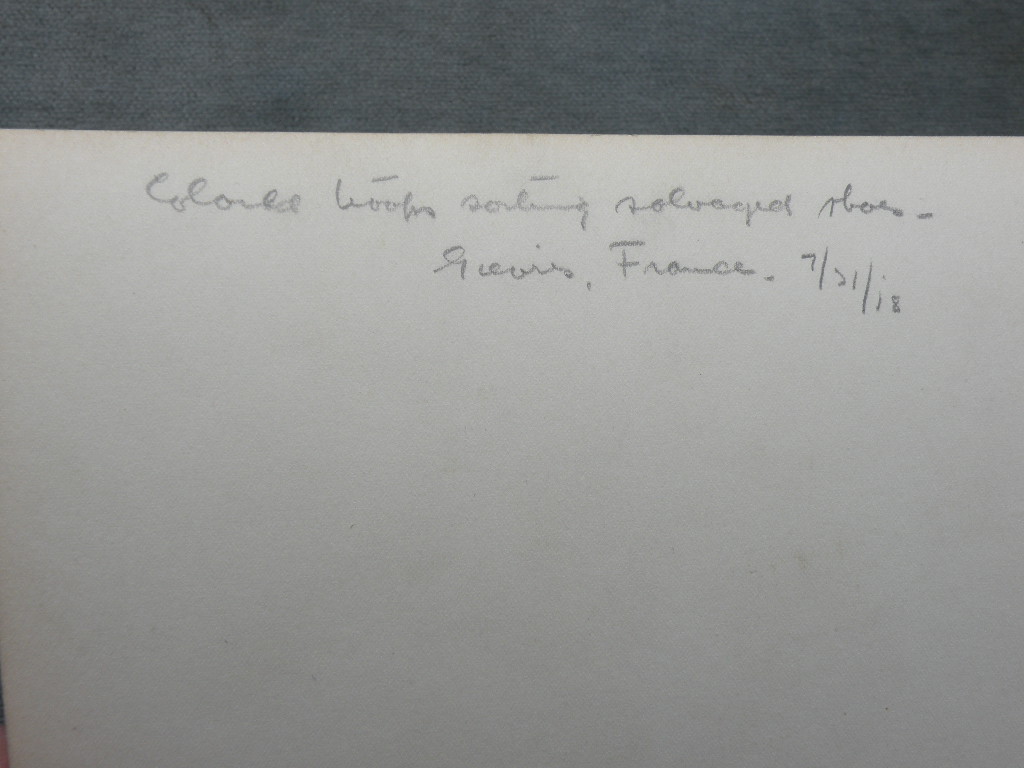 Colored troops sorting salvaged shoes -
Gievres, France. 7/21/18